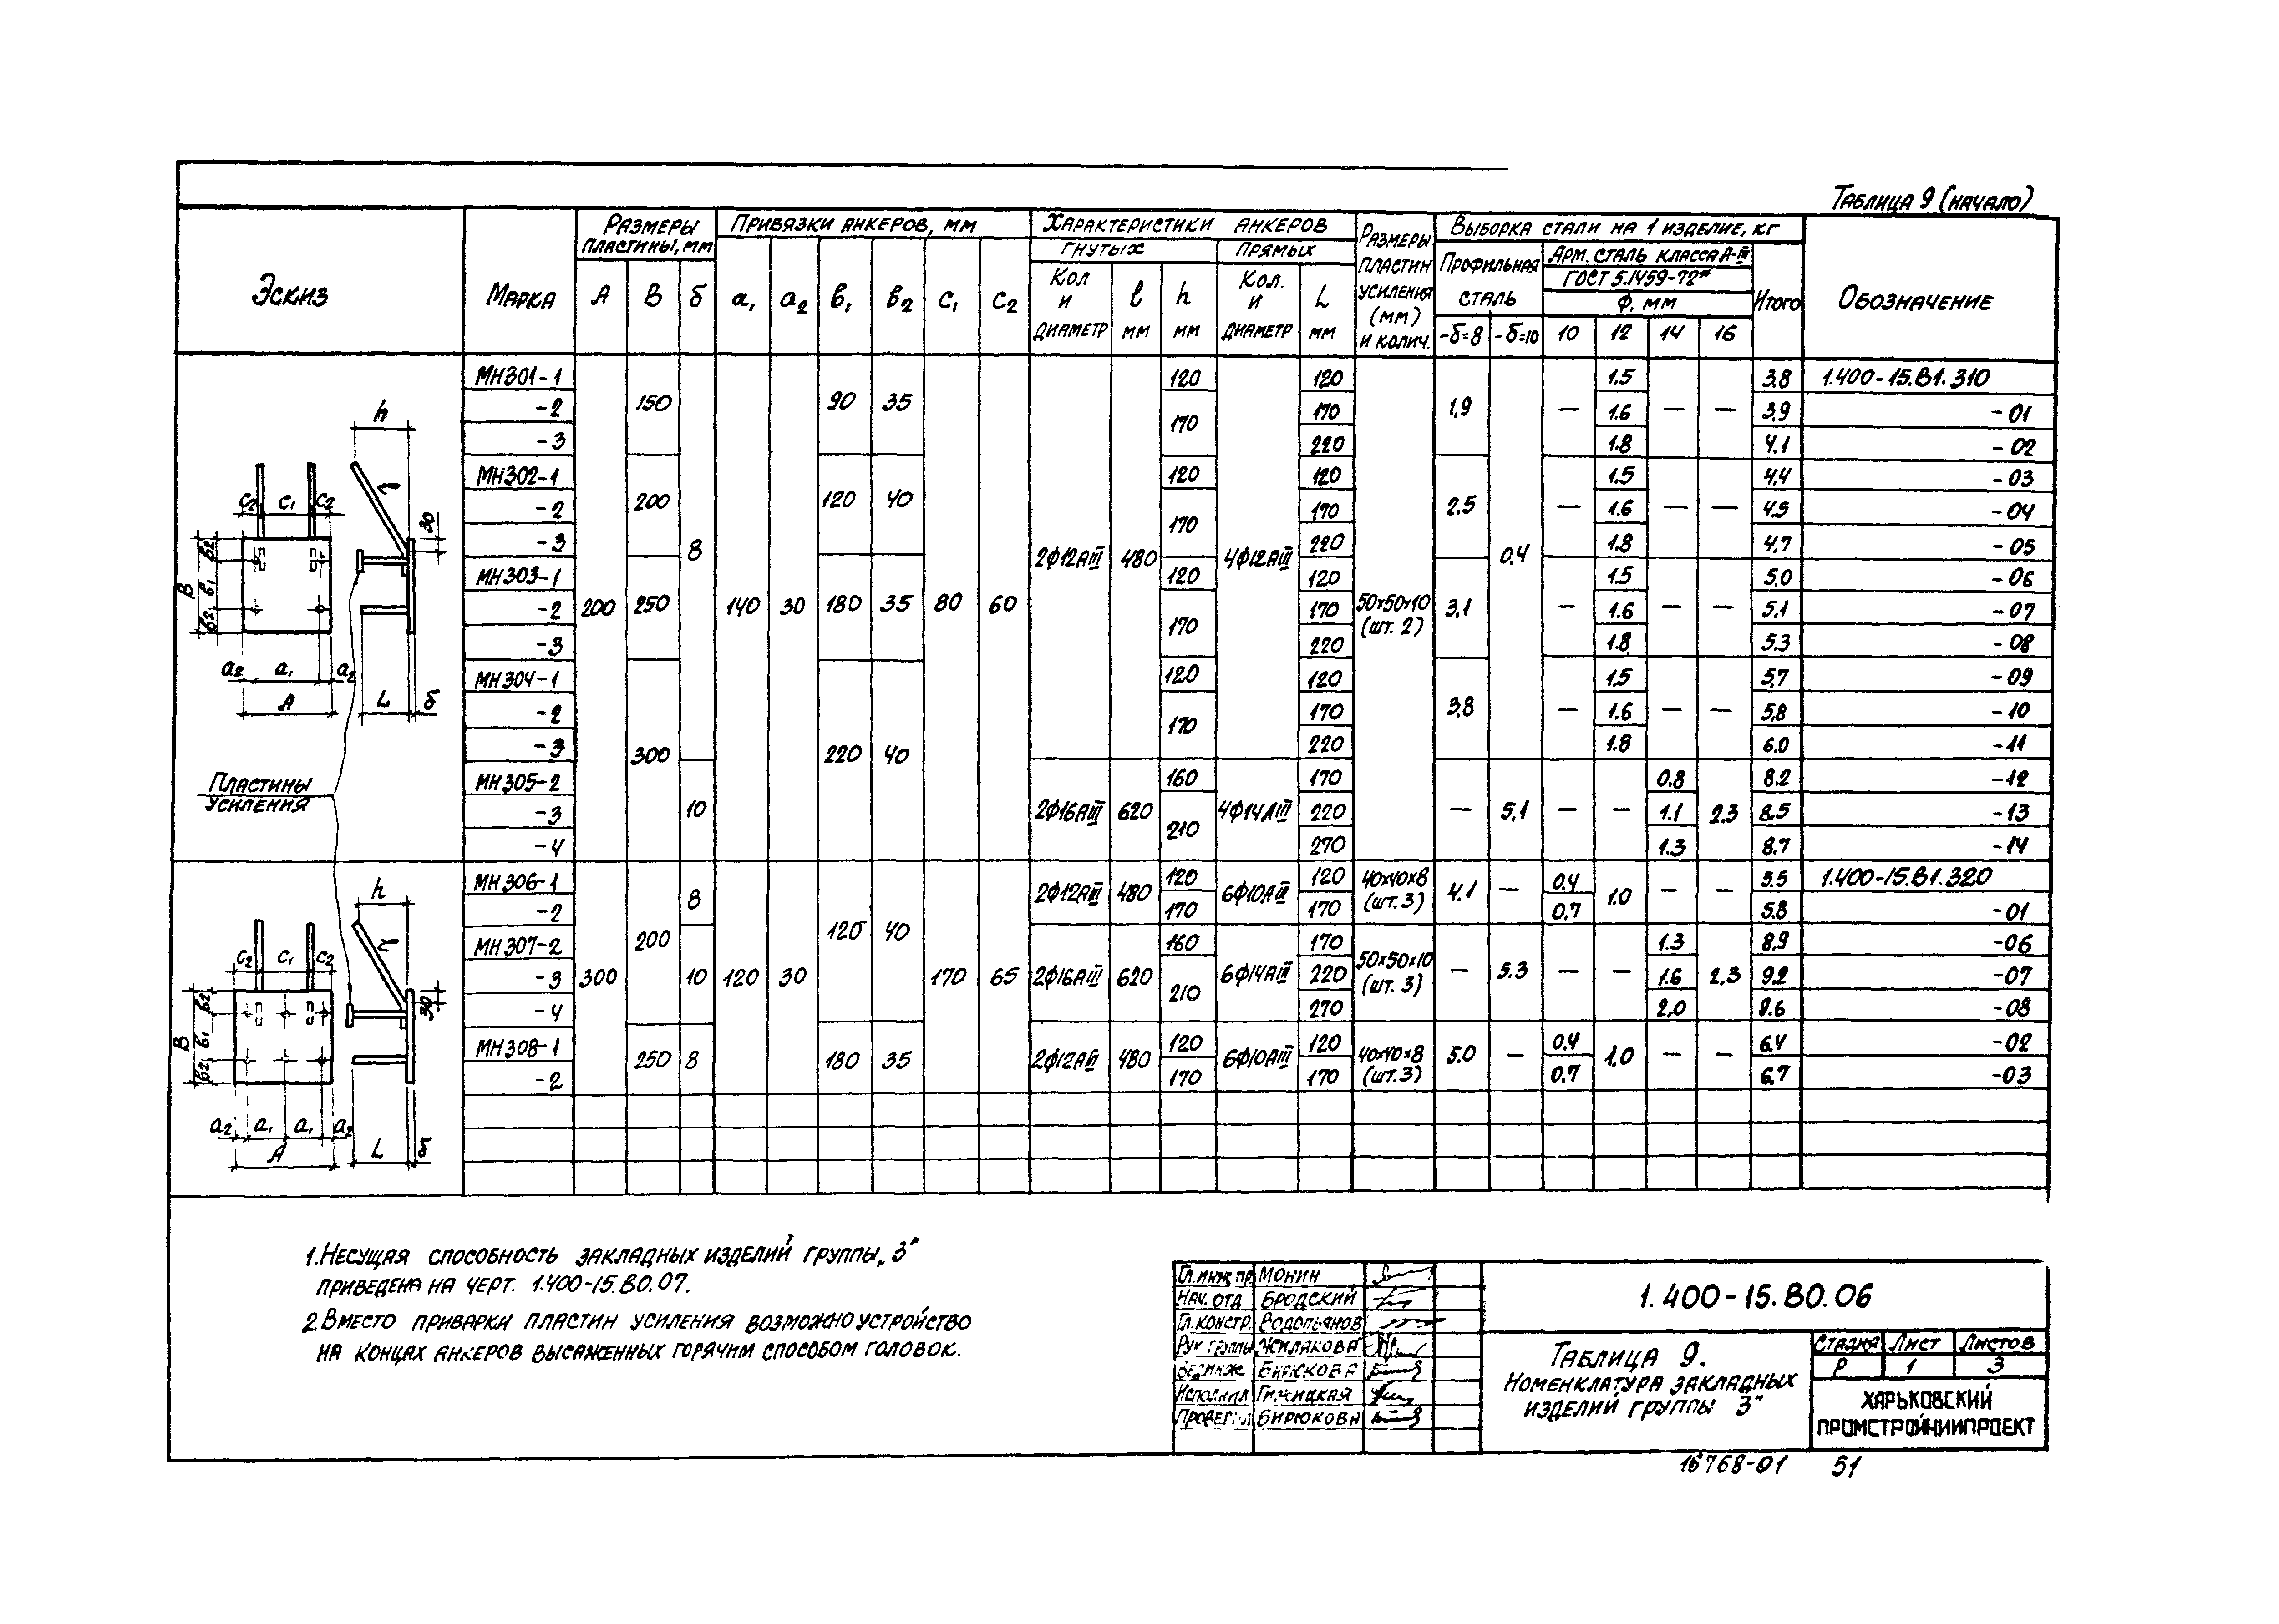 Таблица 9 (начало)
Эскиз
Марка
Размеры пластины, мм
А В δ
Привязки анкеров, мм
а₁ а₂ в₁ в₂ с₁ с₂
Характеристики анкеров
гнутых
прямых
Кол и диаметр
ℓ мм
h мм
Кол. и диаметр
L мм
Размеры пластин усиления (мм) и колич.
Выборка стали на 1 изделие, кг
Профильная сталь
-δ=8 -δ=10
Арм. сталь класса А-III
ГОСТ 5.1459-72*
Ф, мм
10 12 14 16
Итого
Обозначение
МН301-1 200 150 8 140 30 90 35 80 60 2Ф12АIII 480 120 4Ф12АIII 120 50х50х10 (шт. 2) 1,9 0,4 — 1.5 — — 3.8 1.400-15.В1.310
-2 170 170 1.6 3.9 -01
-3 220 1.8 4.1 -02
МН302-1 200 120 40 120 120 2.5 — 1.5 — — 4.4 -03
-2 170 170 1.6 4.5 -04
-3 220 1.8 4.7 -05
МН303-1 250 180 35 120 120 3,1 — 1.5 — — 5.0 -06
-2 170 170 1.6 5.1 -07
-3 220 1.8 5.3 -08
МН304-1 300 220 40 120 120 3,8 — 1.5 — — 5.7 -09
-2 170 170 1.6 5.8 -10
-3 220 1.8 6.0 -11
МН305-2 10 2Ф16АIII 620 160 4Ф14АIII 170 — 5,1 — — 0.8 2.3 8.2 -12
-3 210 220 1.1 8.5 -13
-4 270 1.3 8.7 -14
МН306-1 300 200 8 120 30 120 40 170 65 2Ф12АIII 480 120 6Ф10АIII 120 40х40х8 (шт. 3) 4.1 — 0.4 1.0 — — 5.5 1.400-15.В1.320
-2 170 170 0.7 5.8 -01
МН307-2 10 2Ф16АIII 620 160 6Ф14АIII 170 50х50х10 (шт. 3) — 5.3 — — 1.3 2,3 8,9 -06
-3 210 220 1.6 9.2 -07
-4 270 2,0 9.6 -08
МН308-1 250 8 180 35 2Ф12АIII 480 120 6Ф10АIII 120 40х40х8 (шт. 3) 5.0 — 0.4 1,0 — — 6.4 -02
-2 170 170 0.7 6.7 -03
h
с₂ с₁ с₂
30
В в₂ в₁ в₂
а₂ а₁ а₂
А L δ
Пластины
усиления
h
с₂ с₁ с₂
30
В в₂ в₁ в₂
а₂ а₁ а₁ а₂
А L δ
1. Несущая способность закладных изделий группы „3"
приведена на черт. 1.400-15.В0.07.
2. Вместо приварки пластин усиления возможно устройство
на концах анкеров высаженных горячим способом головок.
Гл. инж. пр. Монин
Нач. отд Бродский
Гл. констр. Водопьянов
Рук группы Жилякова
Вед. инж Бирюкова
Исполнил Гижицкая
Проверил Бирюкова
1.400-15.В0.06
Таблица 9.
Номенклатура закладных
изделий группы 3"
Стадия Лист Листов
Р 1 3
ХАРЬКОВСКИЙ
ПРОМСТРОЙНИИПРОЕКТ
16768-01 51